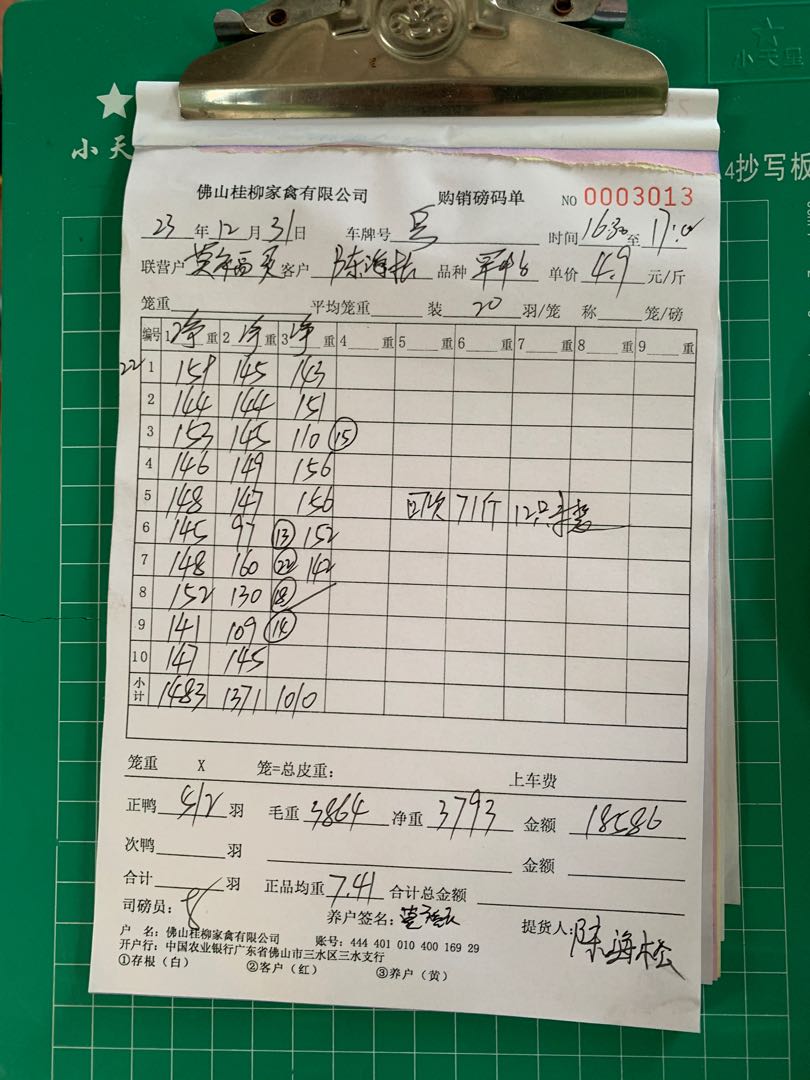 小天星
小天
4抄写板
佛山桂柳家禽有限公司 购销磅码单 NO 0003013
23年12月31日 车牌号 时间 16:30至17:00
联营户 客户 陈海松 品种 单价 4.9 元/斤
笼重 平均笼重 装 20 羽/笼 称 笼/磅
编号 1 净重 2 净重 3 净重 4 重 5 重 6 重 7 重 8 重 9 重
22
1 159 145 143
2 144 144 151
3 153 145 110 ⑮
4 146 149 156
5 148 147 156 71斤 12只
6 145 97 ⑬ 152
7 148 160 ㉒ 142
8 152 130 ⑱
9 141 109 ⑭
10 147 145
小计 1483 1371 1010
笼重 X 笼=总皮重: 上车费
正鸭 512 羽 毛重 3864 净重 3793 金额 18586
次鸭 羽 金额
合计 羽 正品均重 7.41 合计总金额
司磅员: 养户签名: 提货人: 陈海松
户 名: 佛山桂柳家禽有限公司 账号: 444 401 010 400 169 29
开户行: 中国农业银行广东省佛山市三水区三水支行
①存根(白) ②客户(红) ③养户(黄)